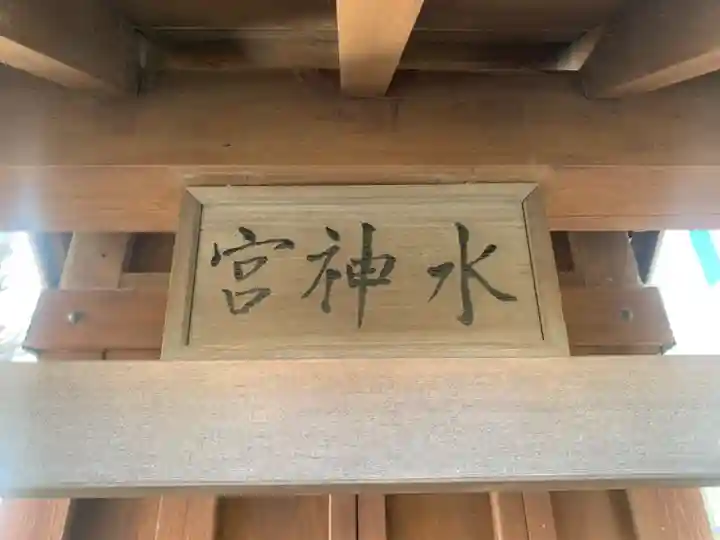 水神宮